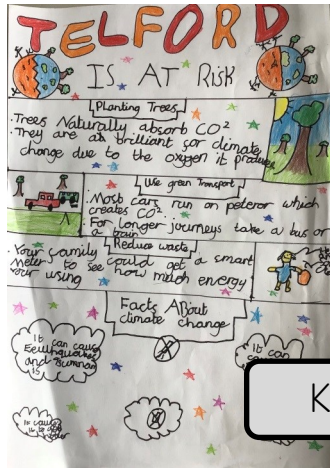 TELFORD
IS AT RISK
Planting Trees
·Trees Naturally absorb CO²
·They are also brilliant for climate
change due to the oxygen it produces
Use green Transport
·Most cars run on peteror which
creates CO²
·For longer journeys take a bus or
a train
Reduce waste
·Your family could get a smart
meter to see how much energy
your using
Facts About
climate change
It can cause
and
is
It can
K